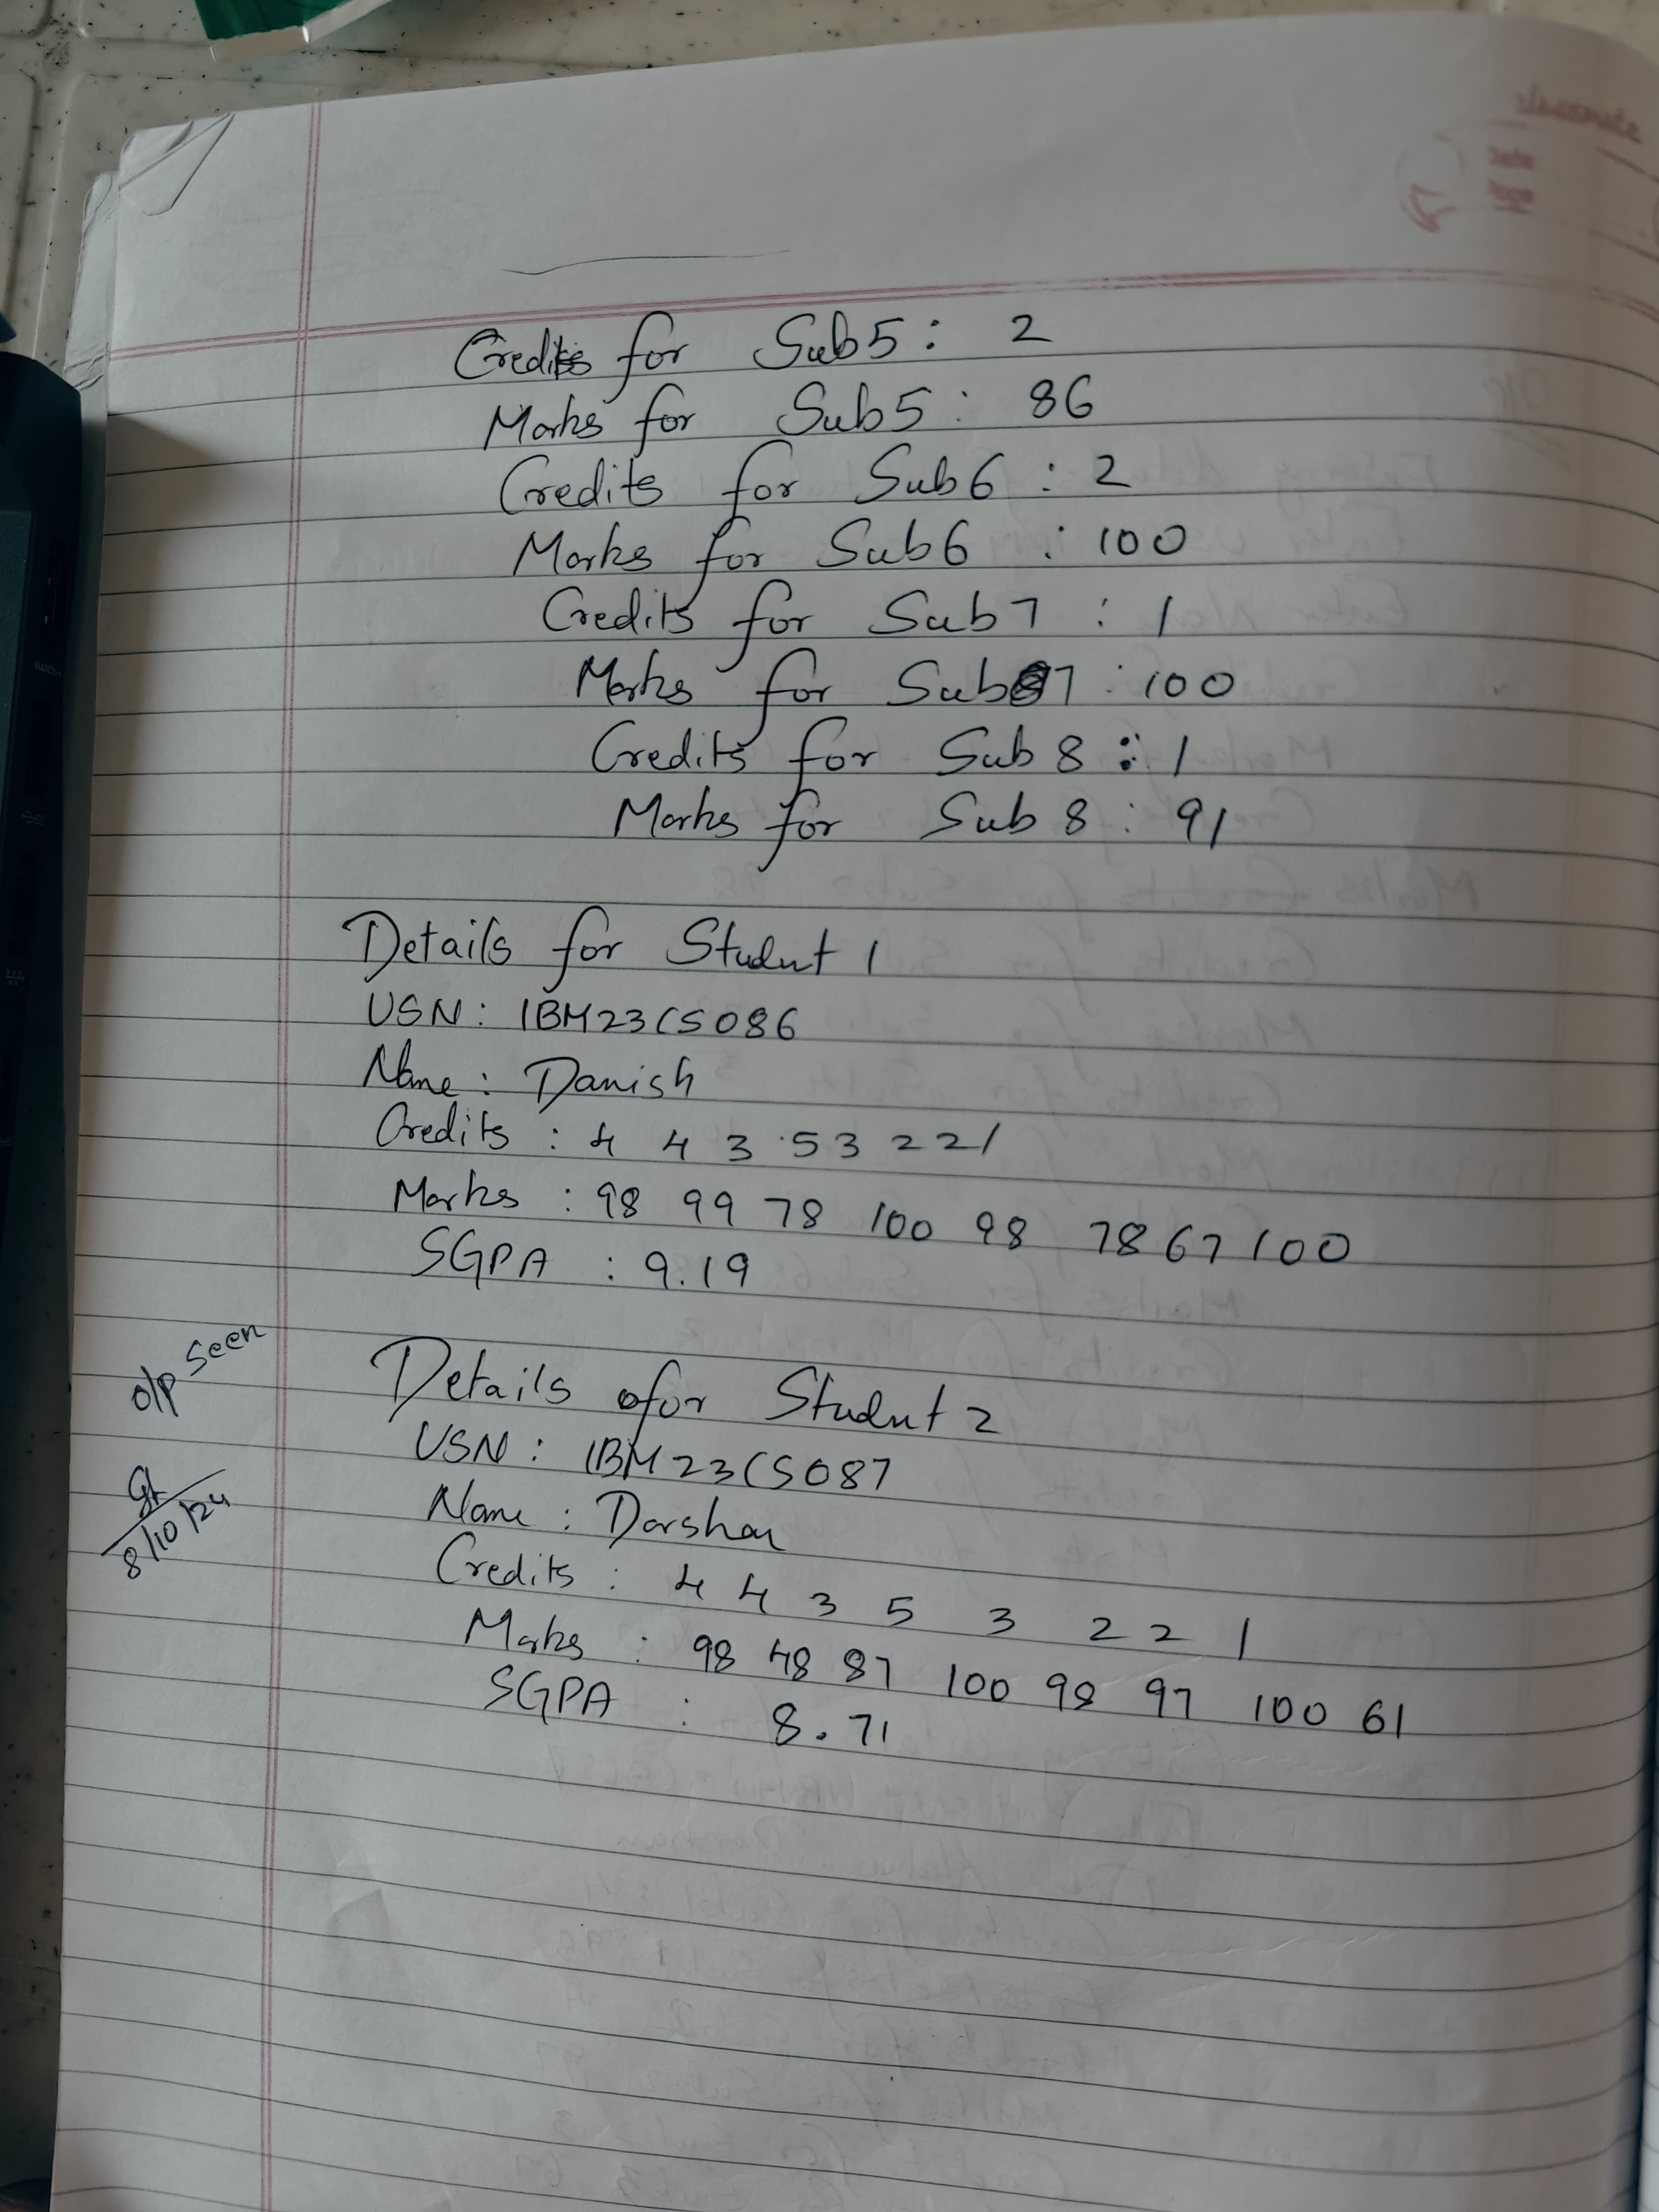 Credits for Sub5: 2
Marks for Sub5: 86
Credits for Sub6 : 2
Marks for Sub6 : 100
Credits for Sub7 : 1
Marks for Sub7 : 100
Credits for Sub 8 : 1
Marks for Sub 8 : 91
Details for Student 1
USN: 1BM23CS086
Name: Danish
Credits : 4 4 3 5 3 2 2 1
Marks : 98 99 78 100 98 78 67 100
SGPA : 9.19
o/p seen
Details for Student 2
USN: 1BM23CS087
Name: Darshan
8/10/24
Credits : 4 4 3 5 3 2 2 1
Marks : 98 48 87 100 98 97 100 61
SGPA : 8.71